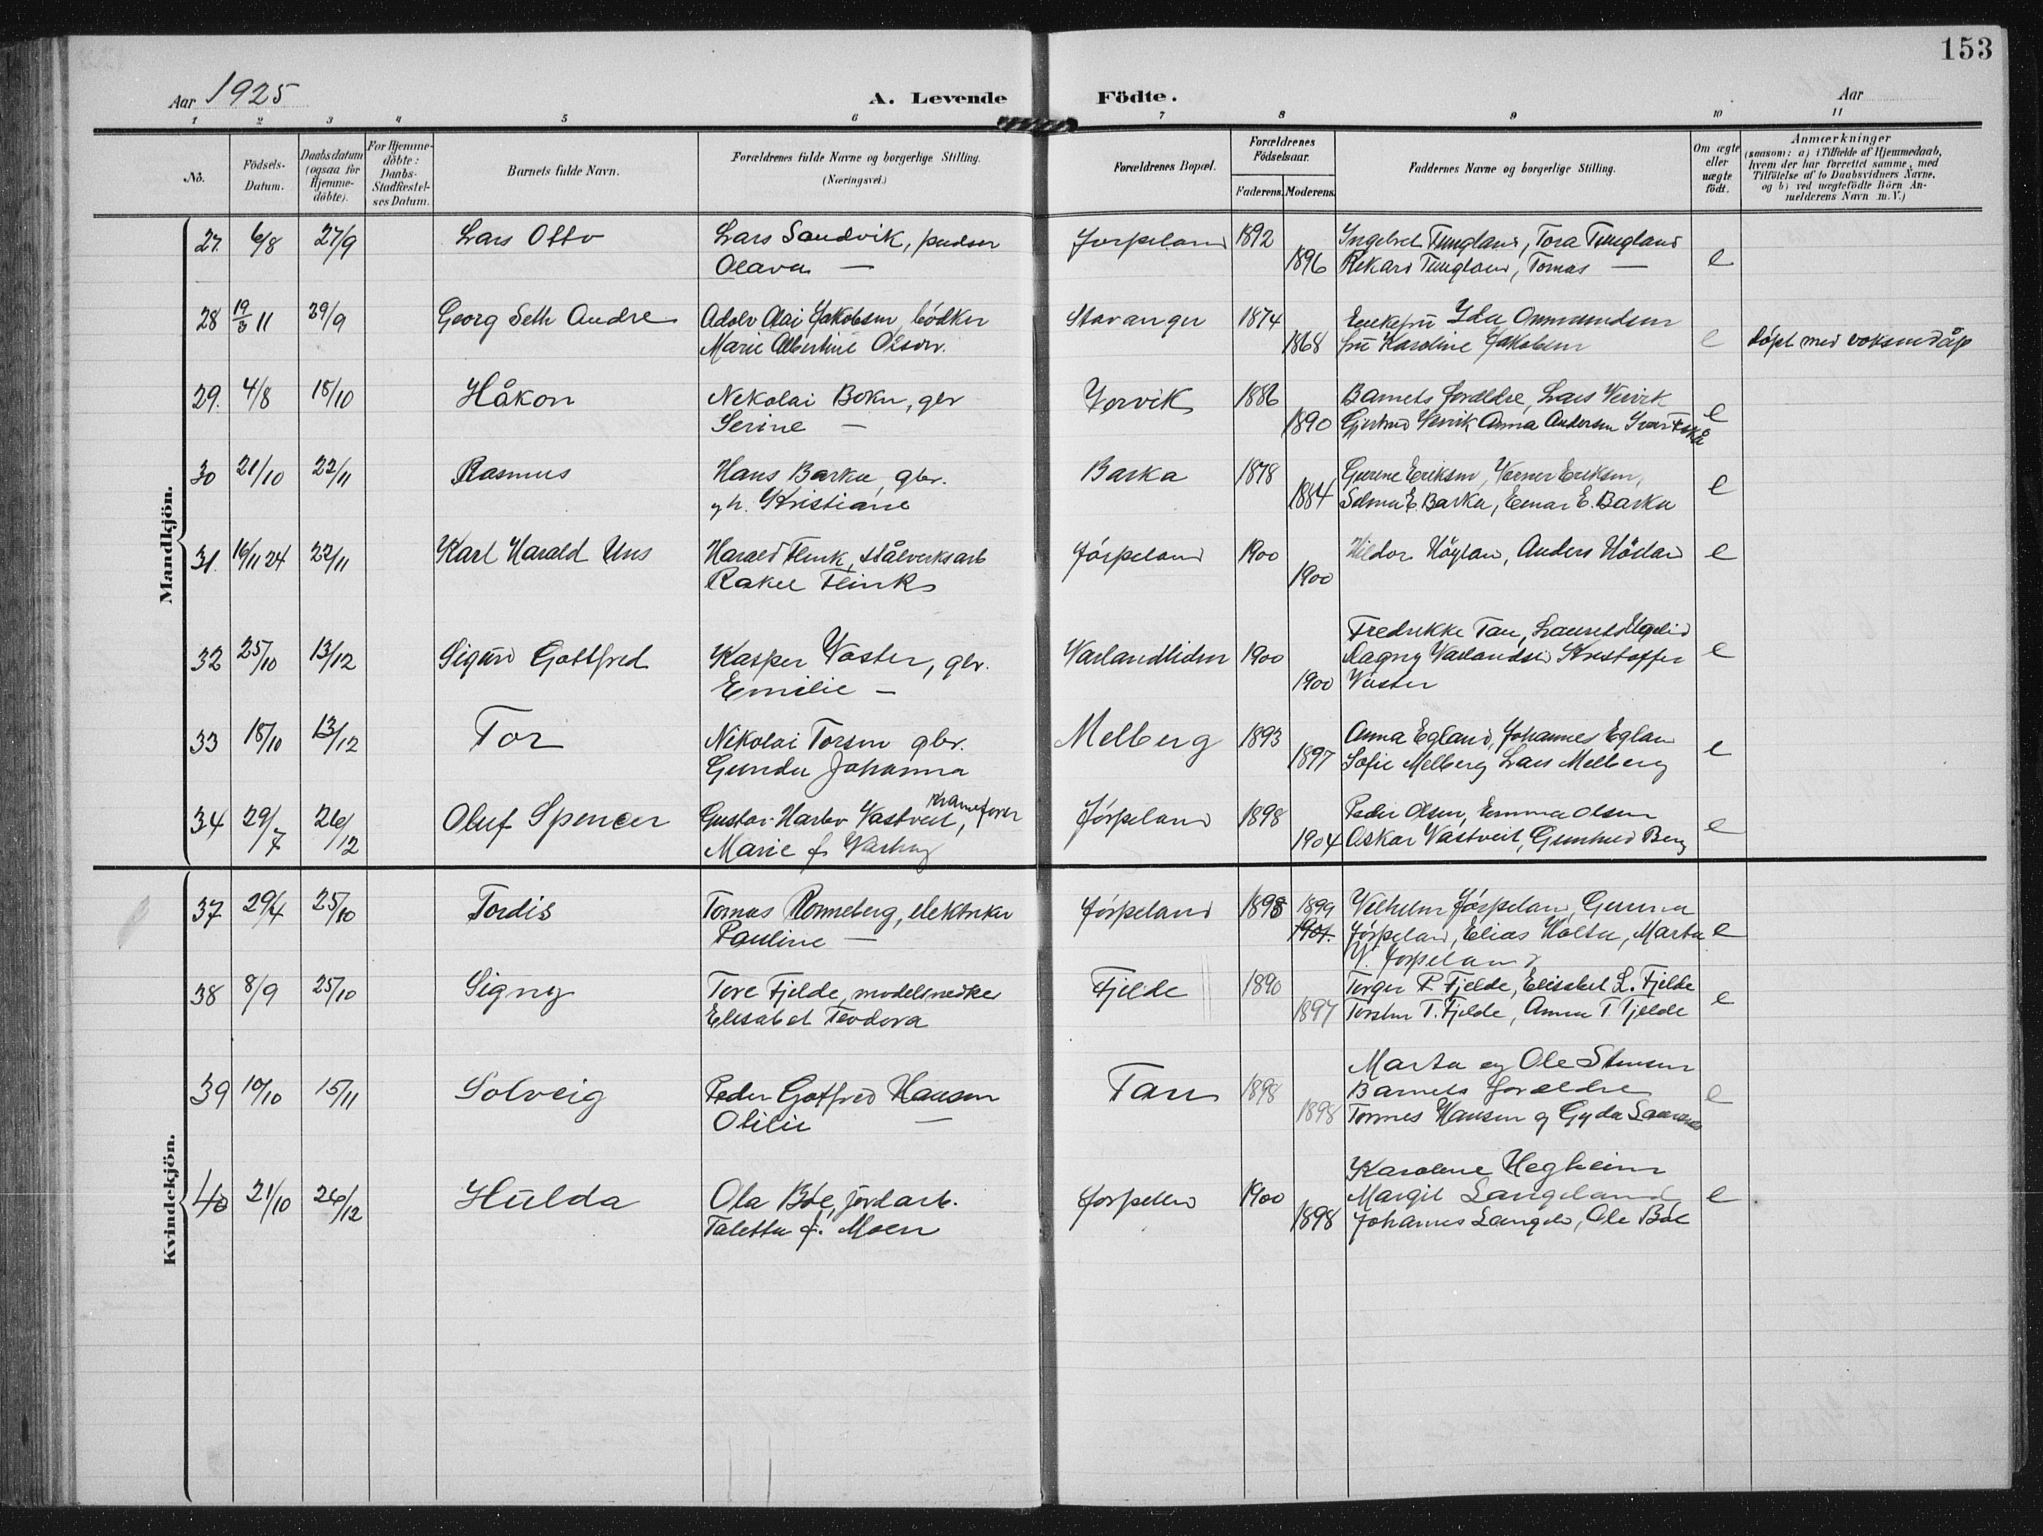 153
Aar 1925 A. Levende Födte. Aar
1 2 3 4 5 6 7 8 9 10 11
No. Födsels-Datum. Daabsdatum (ogsaa for Hjemme-döbte). For Hjemme-döbte: Daabs-Stadfæstel-ses Datum. Barnets fulde Navn. Forældrenes fulde Navne og borgerlige Stilling. (Næringsvei.) Forældrenes Bopæl. Forældrenes Födselsaar. Faderens. Moderens. Faddernes Navne og borgerlige Stilling. Om ægte eller uægte födt. Anmærkninger (saasom: a) i Tilfælde af Hjemmedaab, hvem der har forrettet samme, med Tilföielse af to Daabsvidners Navne, og b) ved uægtefödte Börn An-melderens Navn m. V.)
Mandkjön.
27. 6/8 27/9 Lars Otto Lars Sandvik, pudser Jørpeland 1892 Tungland, Tora Tungland
Olava — 1896 Rikard Tungland, Tomas — e
28 19/3 11 29/9 Georg Seth Andre Adolv Olai Jakobsen, bødker Stavanger 1874 Enkefru Ida Ommundsen
Marie Albertine Olsen. 1868 fru Karoline Jakobsen e døpt med voksendåp
29. 4/8 18/10 Håkon Nikolai Bokn, gbr 1886 Barnets forældre, Lars
Serine — 1890 Gjertrud Anna Andersen e
30 21/10 22/11 Rasmus Hans Barka, gbr. Barka 1878 Eriksen, Verner Eriksen,
gh. Kristiane 1884 Selma E. Barka, Einar E. Barka e
31. 16/11 24 22/11 Karl Harald Urs Harald Flink, stålverksarb Jørpeland 1900 Anders e
Rakel Flink 1900
32 25/10 13/12 Sigurd Gottfred Kasper Vaster, gbr. 1900 Fredrikke Tau, Laurits
Emilie — 1900 Magny Kristoffer e
Vaster
33 18/10 13/12 Tor Nikolai Torsen gbr. Melberg 1893 Anna Egland, Johannes Eglan
Gunda Johanna 1897 Sofie Melberg Lars Melberg e
34 29/7 26/12 Oluf Spencer Gustav Vastveit, kranefører Jørpeland 1898 Peder Olsen, Emma Olsen
Marie f. 1904 Oskar Vastveit, Berg e
Kvindekjön.
37 29/4 25/10 Tordis Tomas Ronneberg, elektriker Jørpeland 1898 1899 Vilhelm Jørpeland, Gunna
Pauline — 1901. Jørpeland, Elias Holta, Marta e
V. Jørpeland
38 8/9 25/10 Signy Tore Fjelde, modelsnedker Fjelde 1890 Torger P. Fjelde, Elisabet L. Fjelde
Elisabet Teodora 1897 Torsten T. Fjelde, Anna T. Fjelde e
39 10/10 15/11 Solveig Peder Gotfred Hansen Tau 1898 Marta og Ole Stensen
Barnets forældre e
Otilie — 1898 Tomas Hansen og Gyda
40 21/10 26/12 Hulda Ola Bøe, jordarb. Jørpeland 1900 Karoline Hegheim
Margit Langeland e
Taletta f. Moen 1898 Johannes Langeld, Ole Bøe